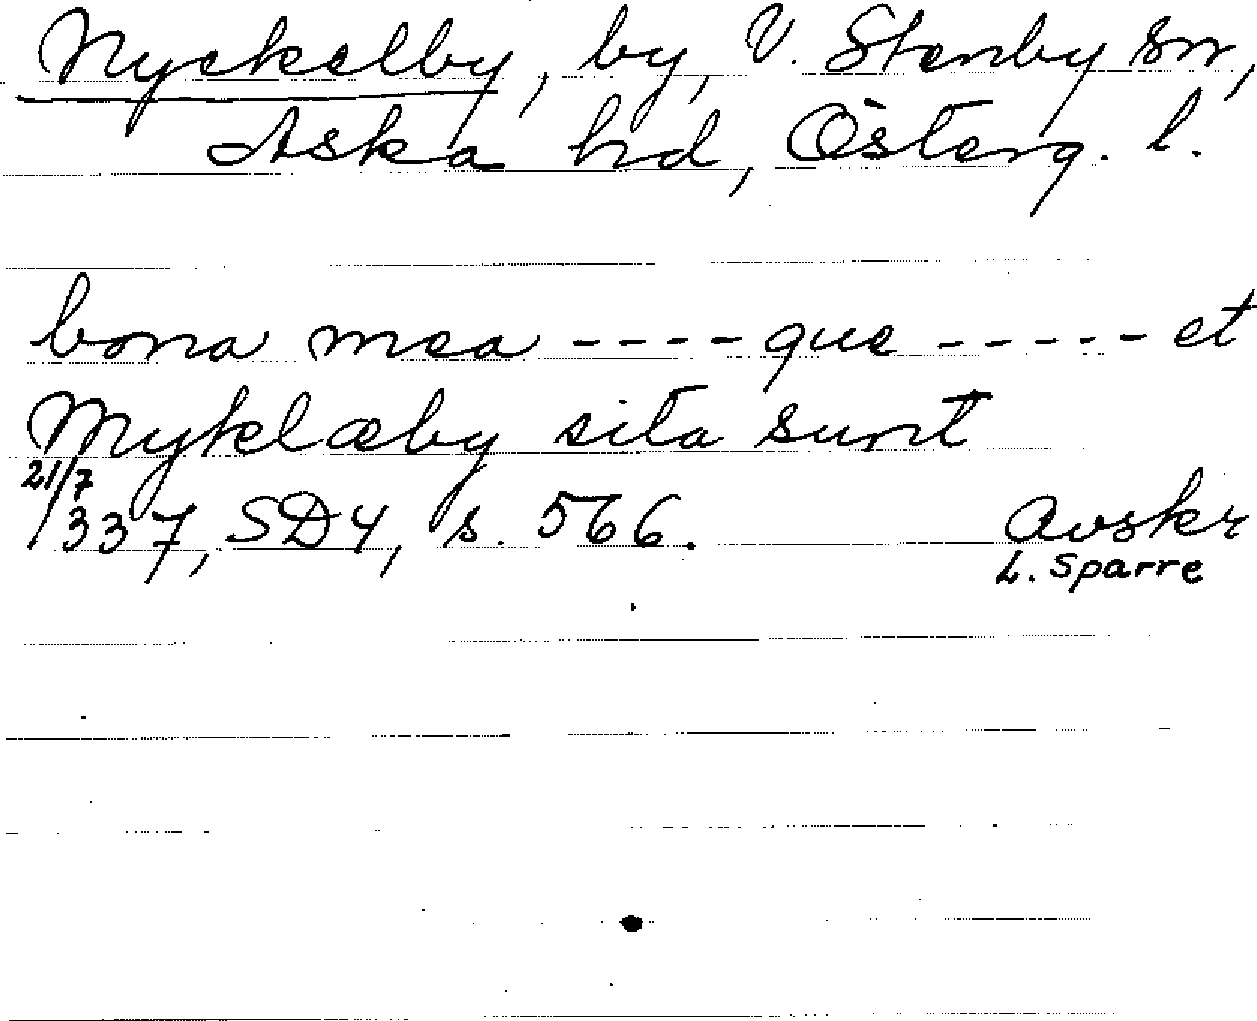 Nyckelby, by, V. Stenby sn,
Aska hd, Österg. l.
bona mea ---- que ----- et
Myklæby sita sunt
21/7
1337, SD4, s. 566. Avskr
L. Sparre